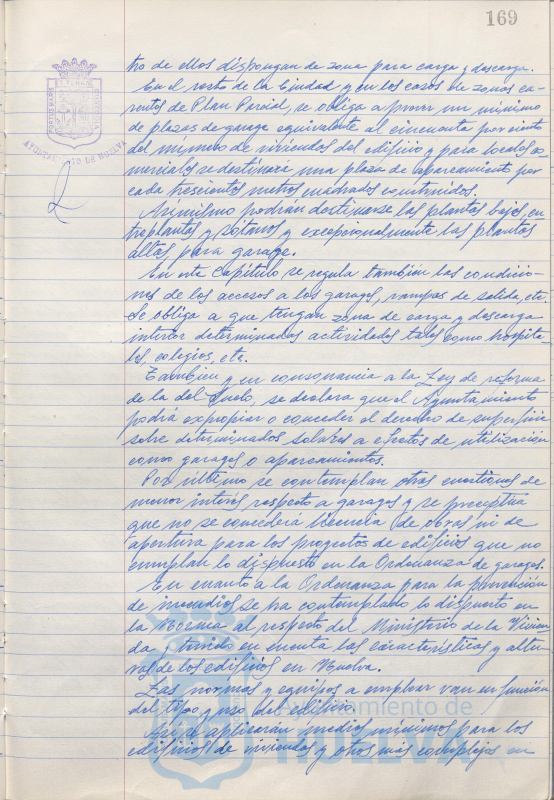 169
AYUNTAMIENTO DE HUELVA
tro de ellos dispongan de zona para carga y descarga.
En el resto de la Ciudad y en los casos de zonas ca-
rentes de Plan Parcial, se obliga a prever un mínimo
de plazas de garage equivalente al cincuenta por ciento
del número de viviendas del edificio y para locales co-
merciales se destinará una plaza de aparcamiento por
cada trescientos metros cuadrados construidos.
Asimismo podrán destinarse las plantas bajas, en-
treplantas y sótanos y excepcionalmente las plantas
altas para garage.
En este Capítulo se regula también las condicio-
nes de los accesos a los garages, rampas de salida, etc.
Se obliga a que tengan zona de carga y descarga
interior determinadas actividades tales como hospita-
les, colegios, etc.
También y en consonancia a la Ley de reforma
de la del Suelo, se declara que el Ayuntamiento
podrá expropiar o conceder el derecho de superficie
sobre determinados solares a efectos de utilización
como garages o aparcamientos.
Por último se contemplan otras cuestiones de
menor interés respecto a garages y se preceptúa
que no se concederá licencia de obras ni de
apertura para los proyectos de edificios que no
cumplan lo dispuesto en la Ordenanza de garages.
En cuanto a la Ordenanza para la prevención
de incendios se ha contemplado lo dispuesto en
la Norma al respecto del Ministerio de la Vivien-
da, teniendo en cuenta las características y altu-
ras de los edificios en Huelva.
Las normas y equipos a emplear van en función
del tipo y uso del edificio.
Así se aplicarán medios mínimos para los
edificios de viviendas y otros más complejos en
Ayuntamiento de
HUELVA